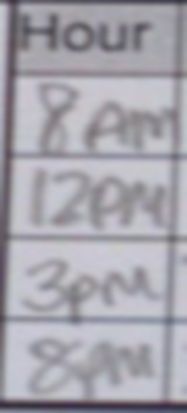 Hour
8 Am
12pm
3pm
8pm